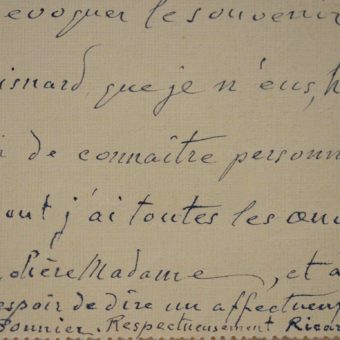 evoquer le souvenir
isnard, que je n'eus, h
de connaître personn
j'ai toutes les œu
Madame, et a
espoir de dire un affectueu
Bonnier. Respectueusement Ricar